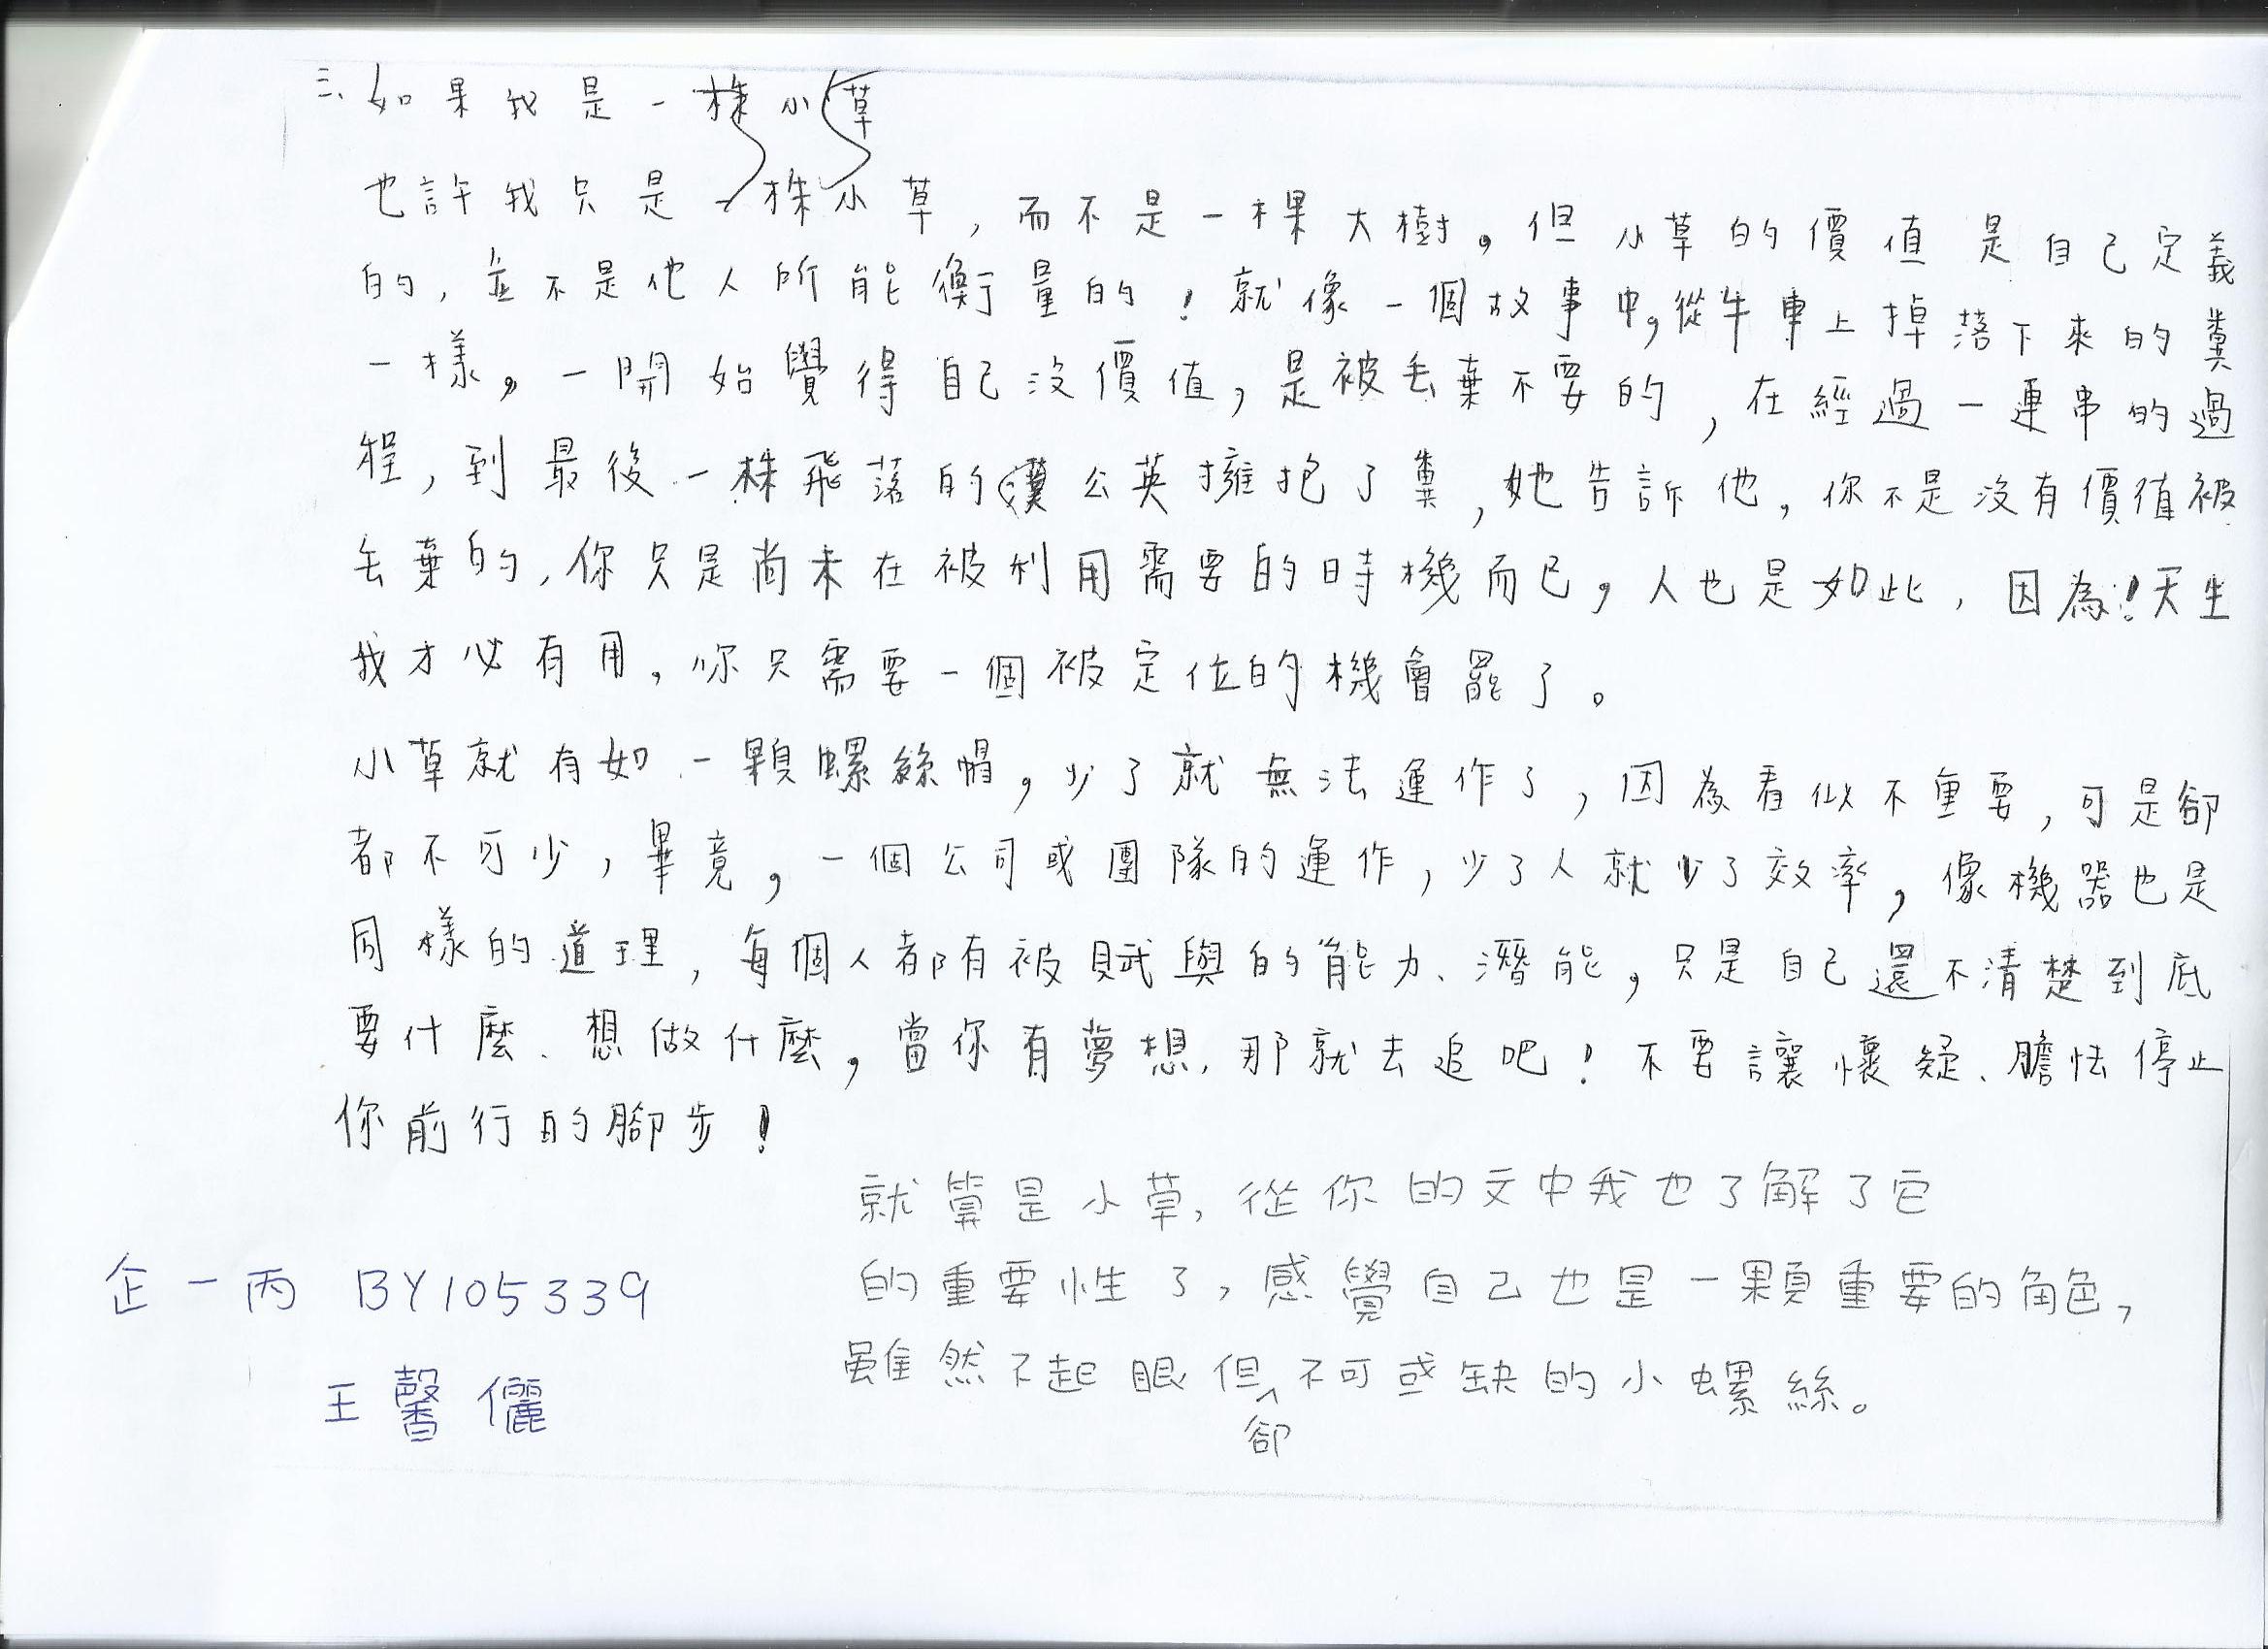 三、如果我是一株小草
也許我只是一株小草,而不是一棵大樹。但小草的價值是自己定義
的,並不是他人所能衡量的!就像一個故事中,從牛車上掉落下來的糞
一樣,一開始覺得自己沒價值,是被丟棄不要的,在經過一連串的過
程,到最後一株飛落的蒲公英擁抱了糞,她告訴他,你不是沒有價值被
丟棄的,你只是尚未在被利用需要的時機而已,人也是如此,因為!天生
我才必有用,你只需要一個被定位的機會罷了。
小草就有如一顆螺絲帽,少了就無法運作了,因為看似不重要,可是卻
都不可少,畢竟,一個公司或團隊的運作,少了人就少了效率,像機器也是
同樣的道理,每個人都有被賦與的能力、潛能,只是自己還不清楚到底
要什麼、想做什麼,當你有夢想,那就去追吧!不要讓懷疑、膽怯停止
你前行的腳步!
就算是小草,從你的文中我也了解了它
的重要性了,感覺自己也是一顆重要的角色,
雖然不起眼但卻不可或缺的小螺絲。
企一丙 BY105339
王馨儷